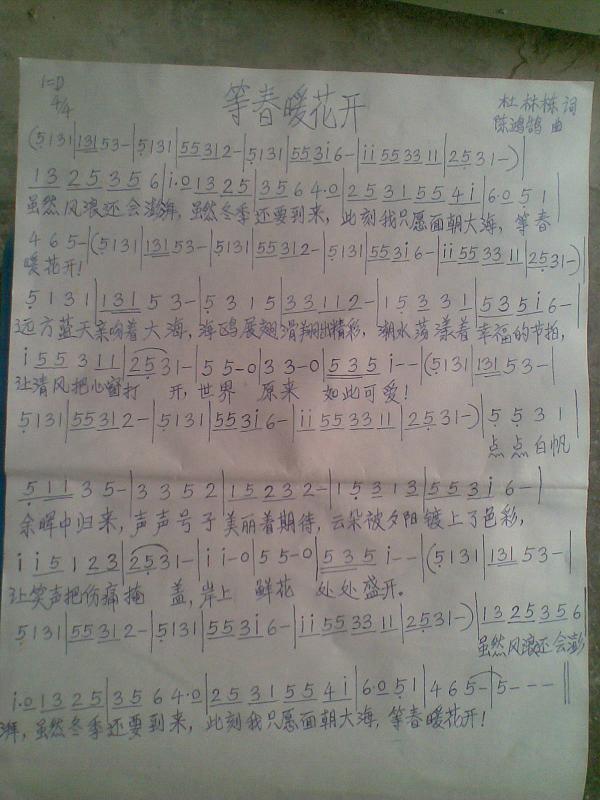 1=D
4/4
等春暖花开
杜林栋 词
陈鸿鹄 曲
(5131|13153-|5131|55312-|5131|553i6-|ii553311|2531-)|
1325356|i·01325|3564·0|2531554i|6·051|
虽然风浪还会澎湃,虽然冬季还要到来,此刻我只愿面朝大海,等春
465-|(5131|13153-|5131|55312-|5131|553i6-|ii553311|2531-)|
暖花开!
5131|13153-|5315|33112-|15331|535i6-|
远方蓝天亲吻着大海,海鸥展翅滑翔出精彩,潮水荡漾着幸福的节拍,
i55311|2531-|55-0|33-0|535i--|(5131|13153-|
让清风把心窗打 开,世界 原来 如此可爱!
5131|55312-|5131|553i6-|ii553311|2531-)|5531|
点点白帆
51135-|3352|15232-|15313|553i6-|
余晖中归来,声声号子美丽着期待,云朵被夕阳镀上了色彩,
ii5123|2531-|ii-0|55-0|535i--|(5131|13153-|
让笑声把伤痛掩 盖,岸上 鲜花 处处盛开。
5131|55312-|5131|553i6-|ii553311|2531-)|1325356
虽然风浪还会澎
i·01325|3564·0|2531554i|6·051|465-|5---‖
湃,虽然冬季还要到来,此刻我只愿面朝大海,等春暖花开!